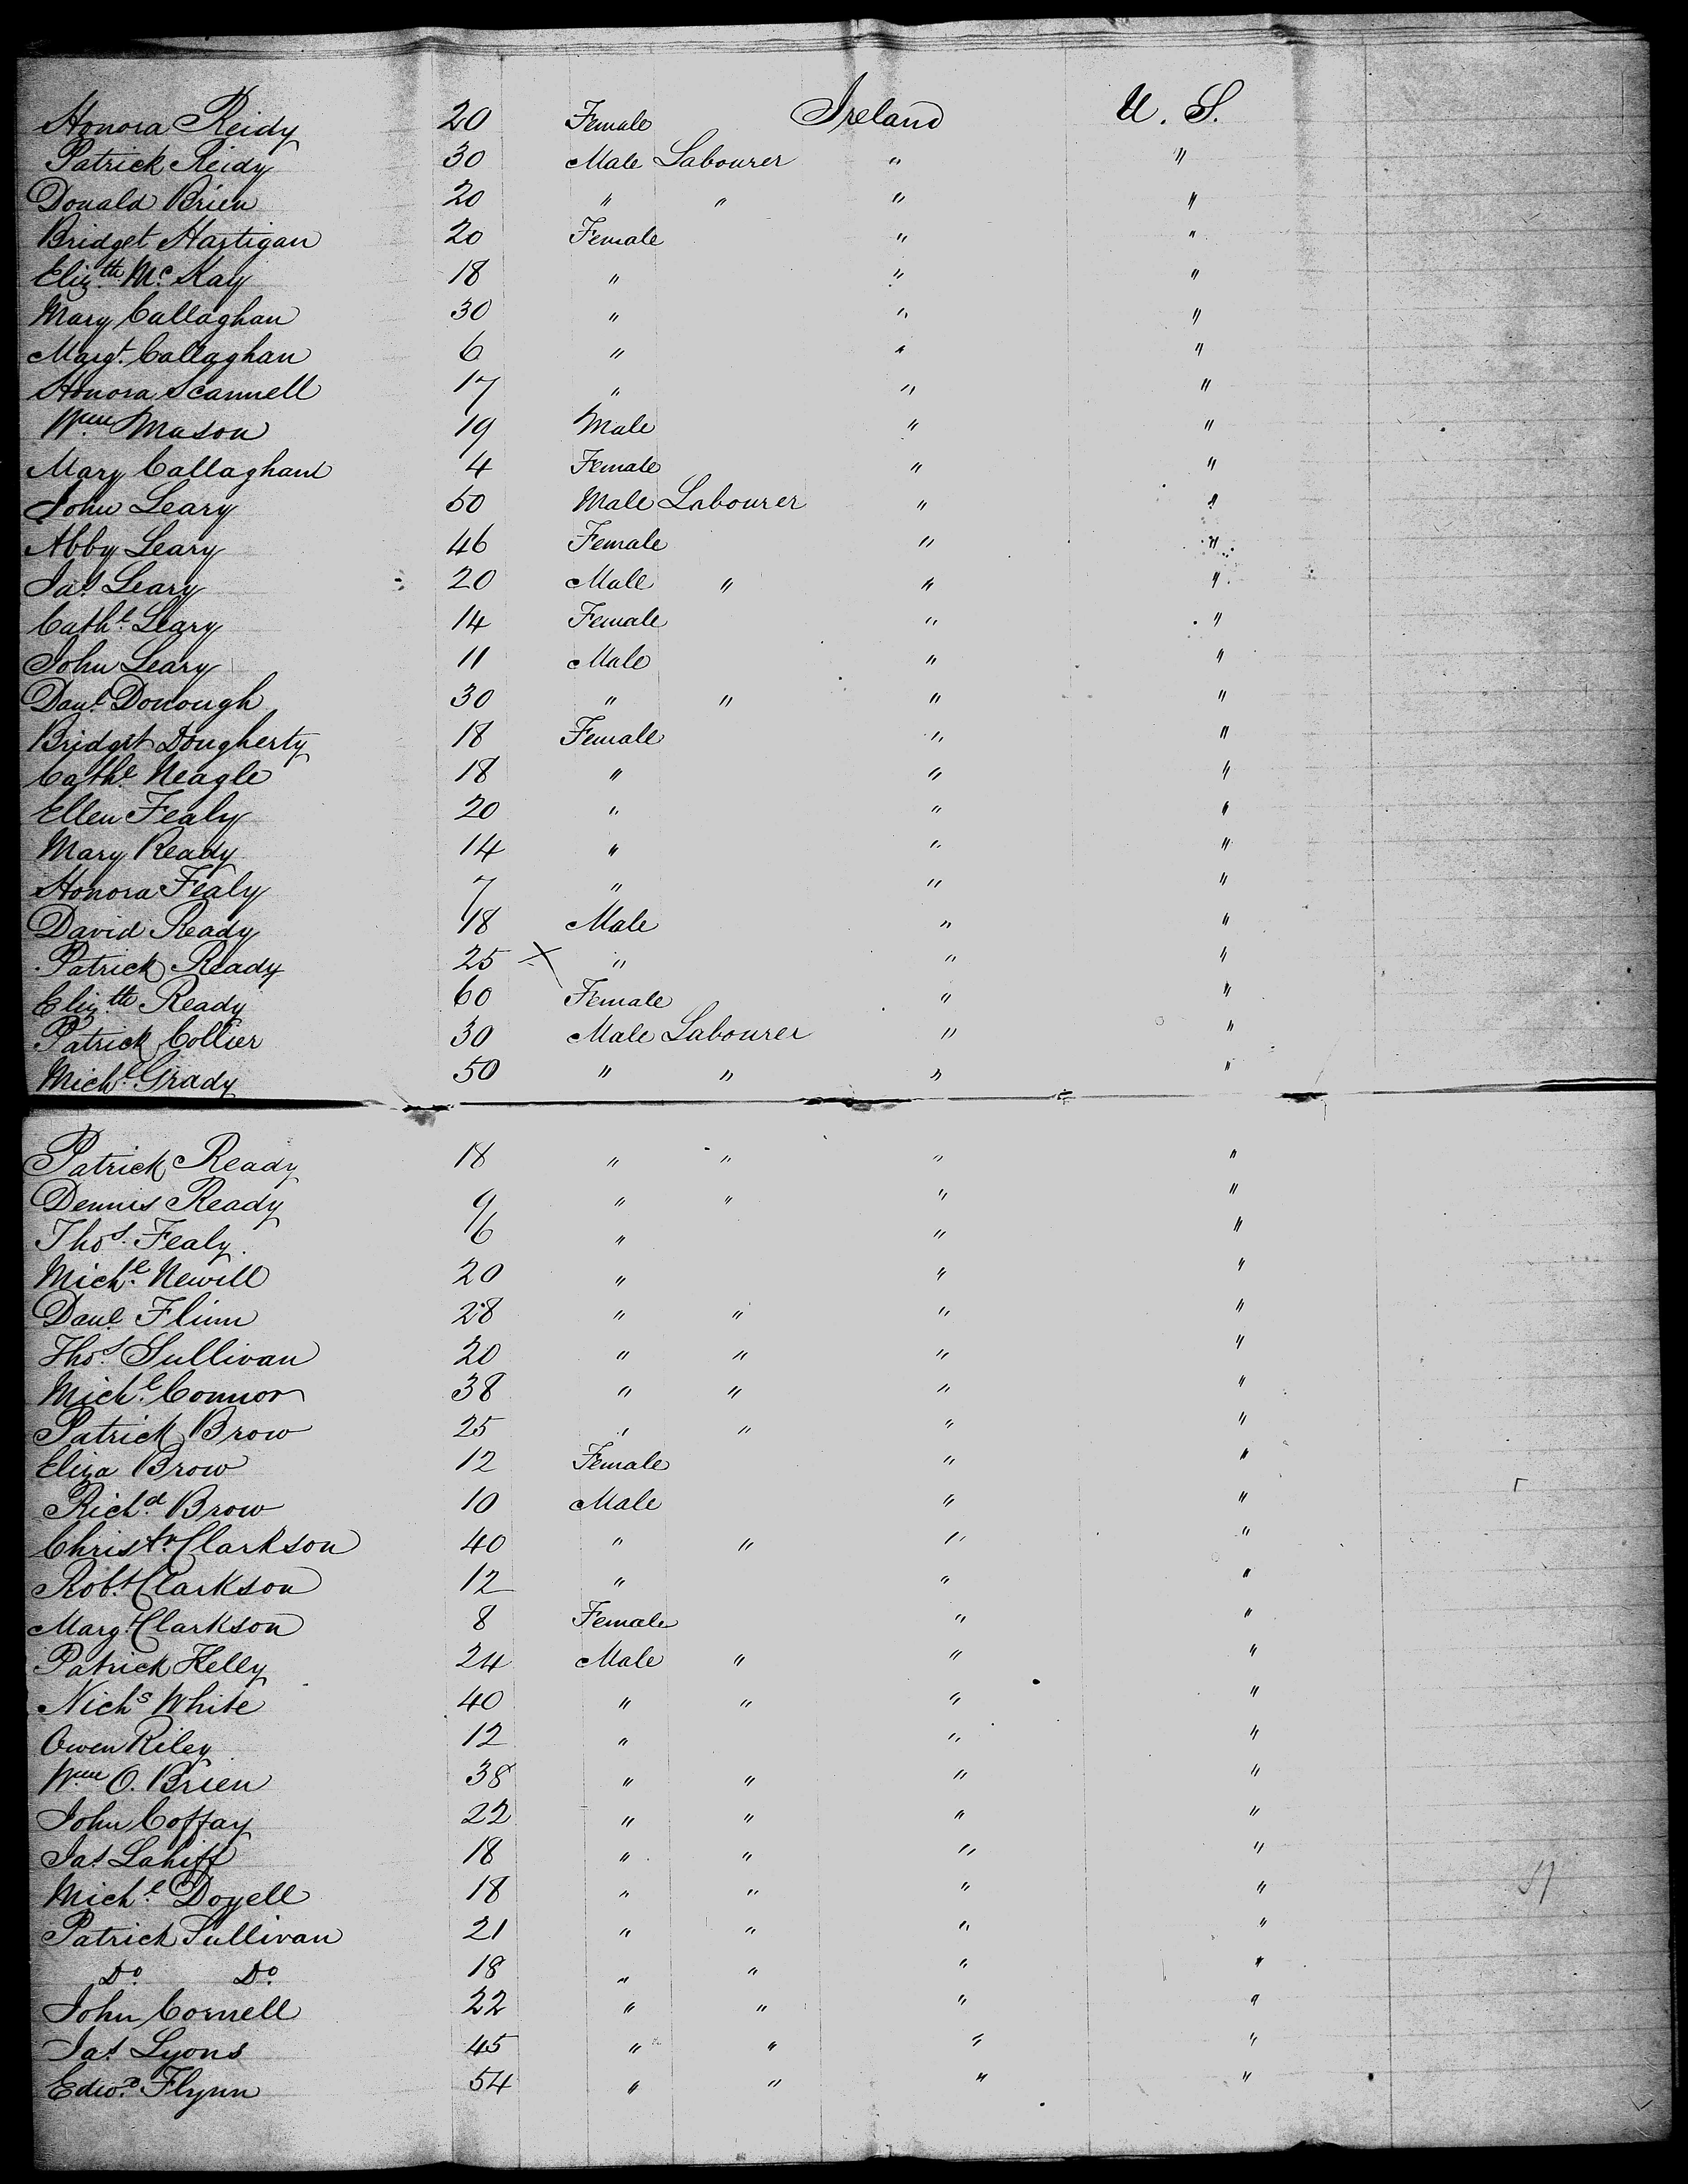 Honora Reidy 20 Female Ireland U. S.
Patrick Reidy 30 Male Labourer " "
Donald Brien 20 " " " "
Bridget Hartigan 20 Female " "
Eliz.th Mc.Kay 18 " " "
Mary Callaghan 30 " " "
Margt. Callaghan 6 " " "
Honora Scannell 17 " " "
Wm. Mason 19 Male " "
Mary Callaghand 4 Female " "
John Leary 50 Male Labourer " "
Abby Leary 46 Female " "
Jas. Leary 20 Male " " "
Cath.e Leary 14 Female " "
John Leary 11 Male " "
Danl. Donough 30 " " " "
Bridget Dougherty 18 Female " "
Cath.e Neagle 18 " " "
Ellen Fealy 20 " " "
Mary Ready 14 " " "
Honora Fealy 7 " " "
David Ready 18 Male " "
Patrick Ready 25 X " " "
Eliz.th Ready 60 Female " "
Patrick Collier 30 Male Labourer " "
Mich.l Grady 50 " " " "
Patrick Ready 18 " " " "
Dennis Ready 9 " " " "
Thos. Fealy. 6 " " "
Mich.l Newill 20 " " "
Danl. Flinn 28 " " " "
Thos. Sullivan 20 " " " "
Mich.l Connor 38 " " " "
Patrick Brow 25 " " " "
Eliza Brow 12 Female " "
Rich.d Brow 10 Male " "
Christr. Clarkson 40 " " " "
Robt. Clarkson 12 " " "
Margt. Clarkson 8 Female " "
Patrick Kelly 24 Male " " "
Nichs White 40 " " " "
Owen Riley 12 " " "
Wm. O. Brien 38 " " " "
John Coffay 22 " " " "
Jas. Lahiff 18 " " " "
Mich.l Doyell 18 " " " "
Patrick Sullivan 21 " " " "
Do. Do. 18 " " " "
John Cornell 22 " " " "
Jas. Lyons 45 " " " "
Edwd. Flynn 54 " " " "